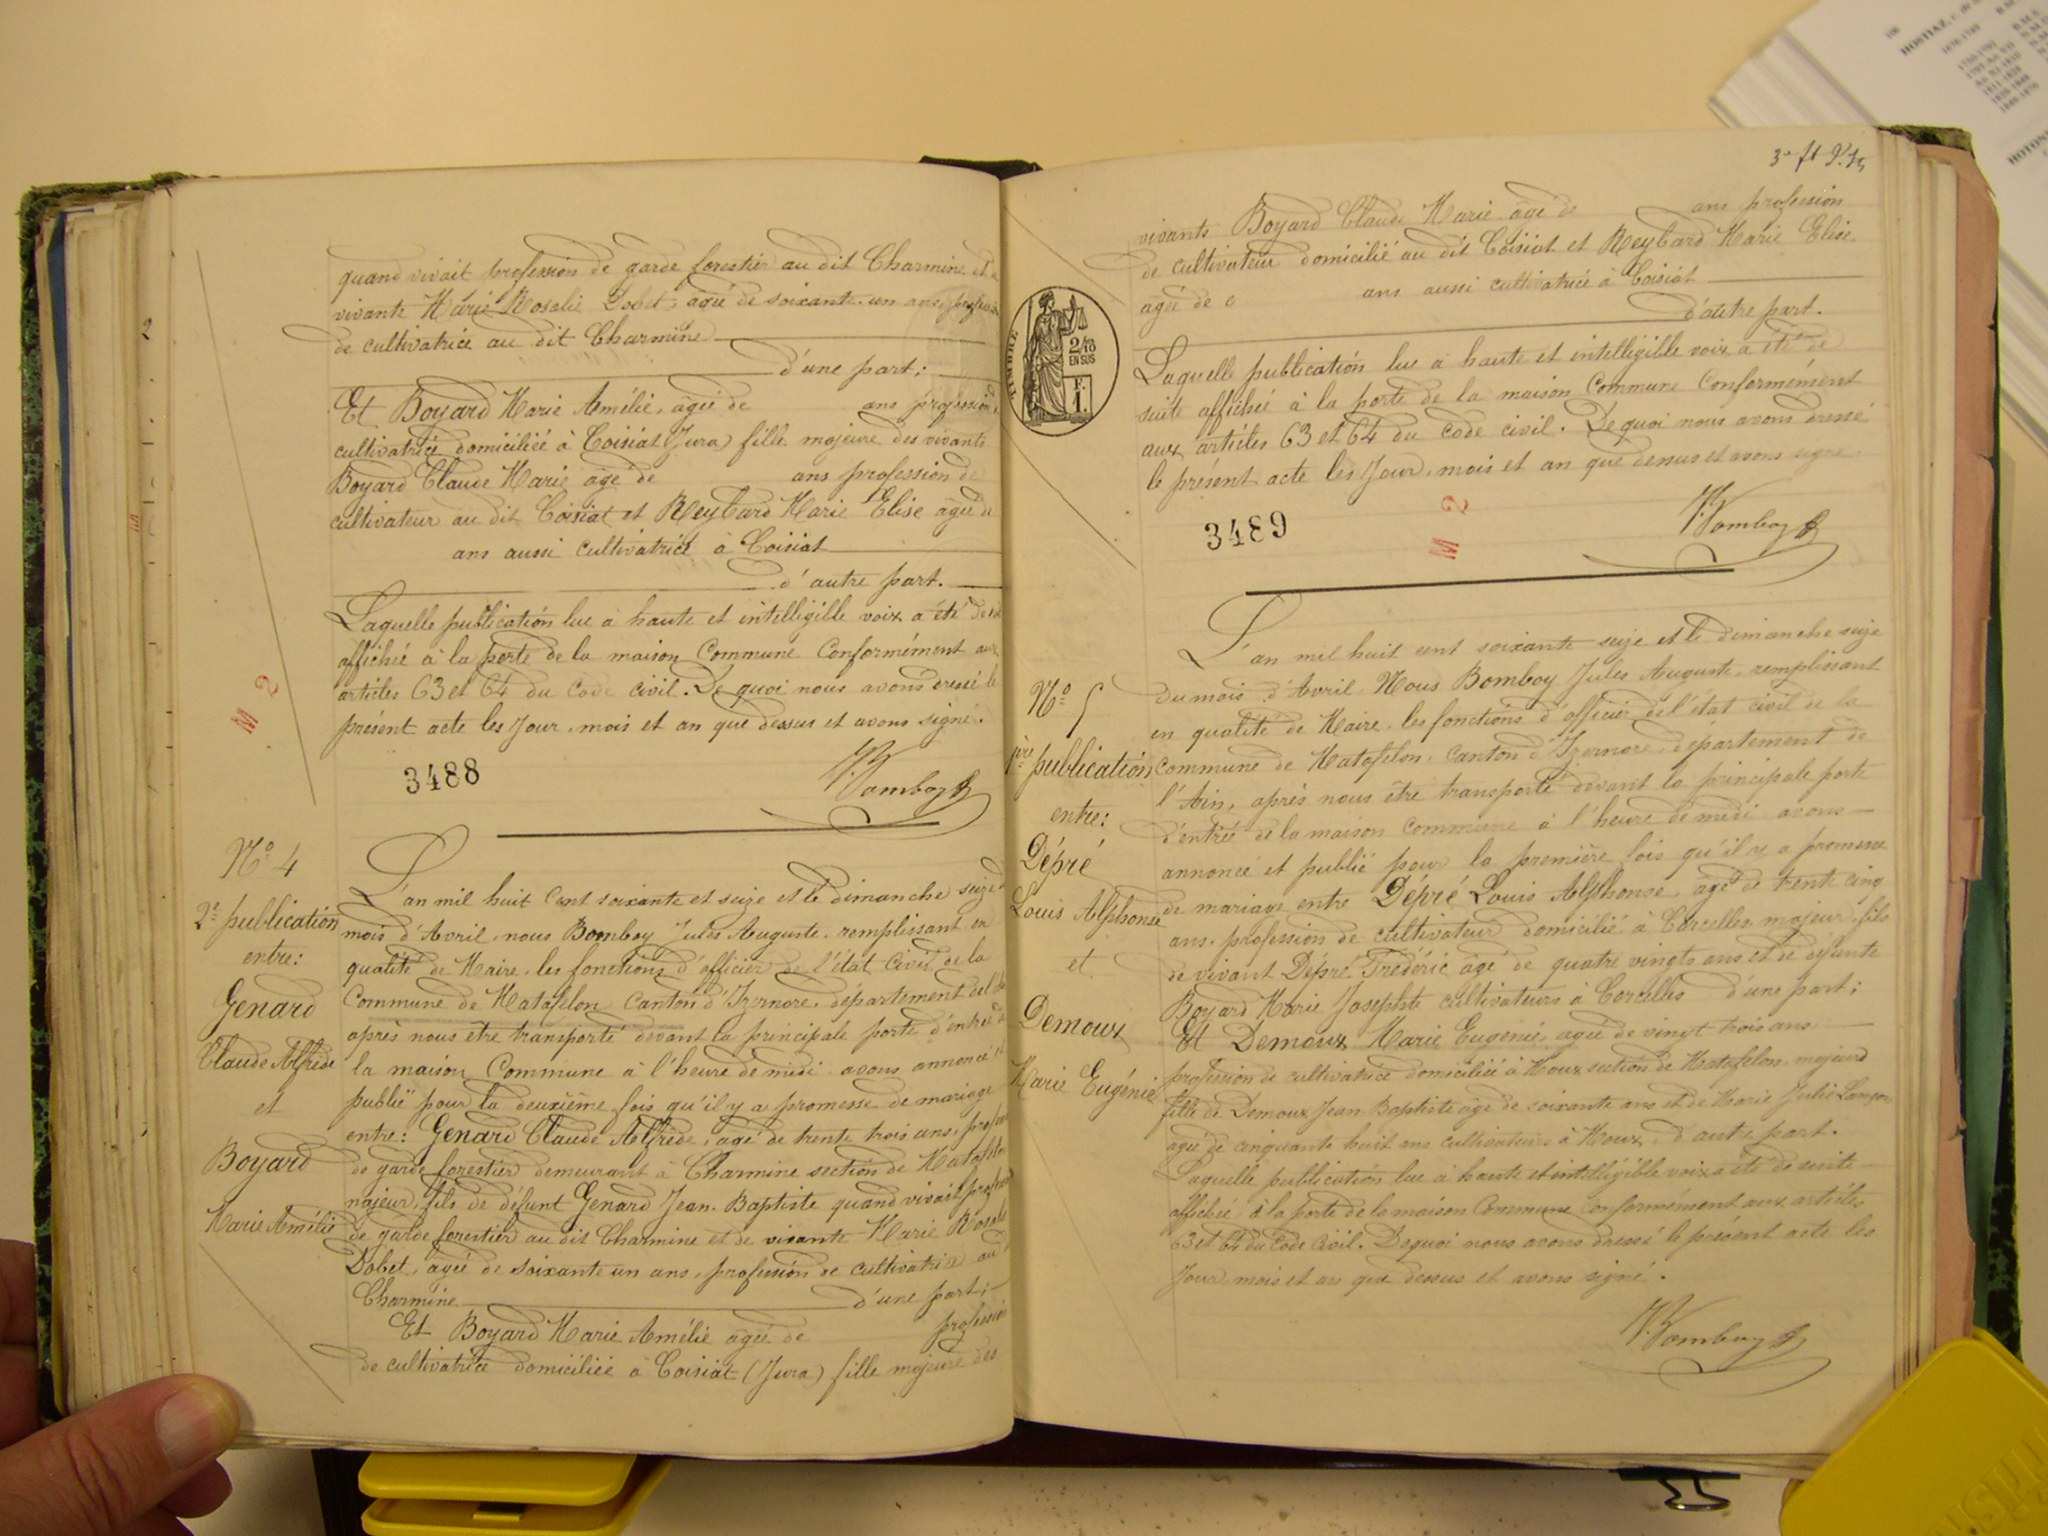 quand vivait profession de garde forestier au dit Charmine et de
vivante Marie Rosalie Dobet, agée de soixante un ans, profession
de cultivatrice au dit Charmine
d'une part;
Et Boyard Marie Amélie, agée de ans profession de
cultivatrice domiciliée à Coisiat (Jura) fille majeure des vivants
Boyard Claude Marie agé de ans profession de
cultivateur au dit Coisiat et Reybard Marie Elise agée de
ans aussi cultivatrice à Coisiat
d'autre part.
Laquelle publication lue à haute et intelligible voix a été de suite
affichée à la porte de la maison Commune Conformément aux
articles 63 et 64 du Code civil. De quoi nous avons dressé le
présent acte les Jour, mois et an que dessus et avons signé.
M 2
3488
J. Bomboy
N° 4
2e publication
entre:
Genard
Claude Alfrède
et
Boyard
Marie Amélie
L'an mil huit Cent soixante et seize et le dimanche seize du
mois d'Avril, nous Bomboy Jules Auguste, remplissant en
qualité de Maire, les fonctions d'officier de l'état Civil de la
Commune de Matafelon Canton d'Izernore, département de l'Ain
après nous être transporté devant la principale porte d'entrée de
la maison Commune à l'heure de midi avons annoncé et
publié pour la deuxième fois qu'il y a promesse de mariage
entre: Genard Claude Alfrède, agé de trente trois ans, profession
de garde forestier demeurant à Charmine section de Matafelon
majeur, fils de défunt Genard Jean-Baptiste quand vivait profession
de garde forestier au dit Charmine et de vivante Marie Rosalie
Dobet, agée de soixante un ans, profession de cultivatrice au
Charmine d'une part;
Et Boyard Marie Amélie agée de profession
de cultivatrice domiciliée à Coisiat (Jura) fille majeure des
vivants Boyard Claude Marie agé de ans profession
de cultivateur domicilié au dit Coisiat et Reybard Marie Elise
agée de ans aussi cultivatrice à Coisiat
d'autre part.
TIMBRE
2/10
EN SUS
1 F.
Laquelle publication lue à haute et intelligible voix a été de
suite affichée à la porte de la maison Commune Conformément
aux articles 63 et 64 du Code civil. De quoi nous avons dressé
le présent acte les Jour, mois et an que dessus et avons signé
M 2
3489
J. Bomboy
N° 5
1ère publication
entre:
Dépré
Louis Alphonse
et
Demoux
Marie Eugénie
L'an mil huit cent soixante seize et le dimanche seize
du mois d'Avril, Nous Bomboy Jules Auguste, remplissant
en qualité de Maire, les fonctions d'officier de l'état civil de la
Commune de Matafelon, Canton d'Izernore, département de
l'Ain, après nous être transporté devant la principale porte
d'entrée de la maison Commune à l'heure de midi avons
annoncé et publié pour la première fois qu'il y a promesse
de mariage entre Dépré Louis Alphonse agé de trente cinq
ans, profession de cultivateur domicilié à Corcelles, majeur, fils
de vivant Dépré Frédéric agé de quatre vingts ans et de défunte
Boyard Marie Josephte cultivateurs à Corcelles d'une part;
Et Demoux Marie Eugénie, agée de vingt trois ans
profession de cultivatrice domiciliée à Moux section de Matafelon, majeure
fille de Demoux Jean-Baptiste agé de soixante ans et de Marie Julie
agée de cinquante huit ans cultivateurs à Moux, d'autre part.
Laquelle publication lue à haute et intelligible voix a été de suite
affichée à la porte de la maison Commune Conformément aux articles
63 et 64 du Code Civil. De quoi nous avons dressé le présent acte les
Jour, mois et an que dessus et avons signé.
J. Bomboy